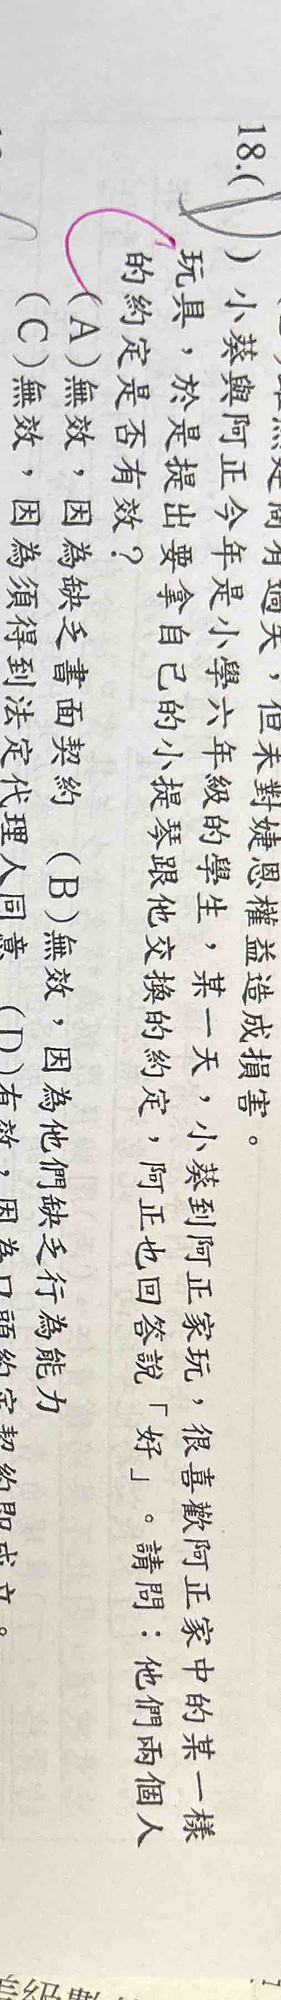 過失，但未對婕恩權益造成損害。
18.( ) 小葵與阿正今年是小學六年級的學生，某一天，小葵到阿正家玩，很喜歡阿正家中的某一樣
玩具，於是提出要拿自己的小提琴跟他交換的約定，阿正也回答說「好」。請問：他們兩個人
的約定是否有效？
(A)無效，因為缺乏書面契約 (B)無效，因為他們缺乏行為能力
(C)無效，因為須得到法定代理人同意 (D)有效，因為口頭約定契約即成立。